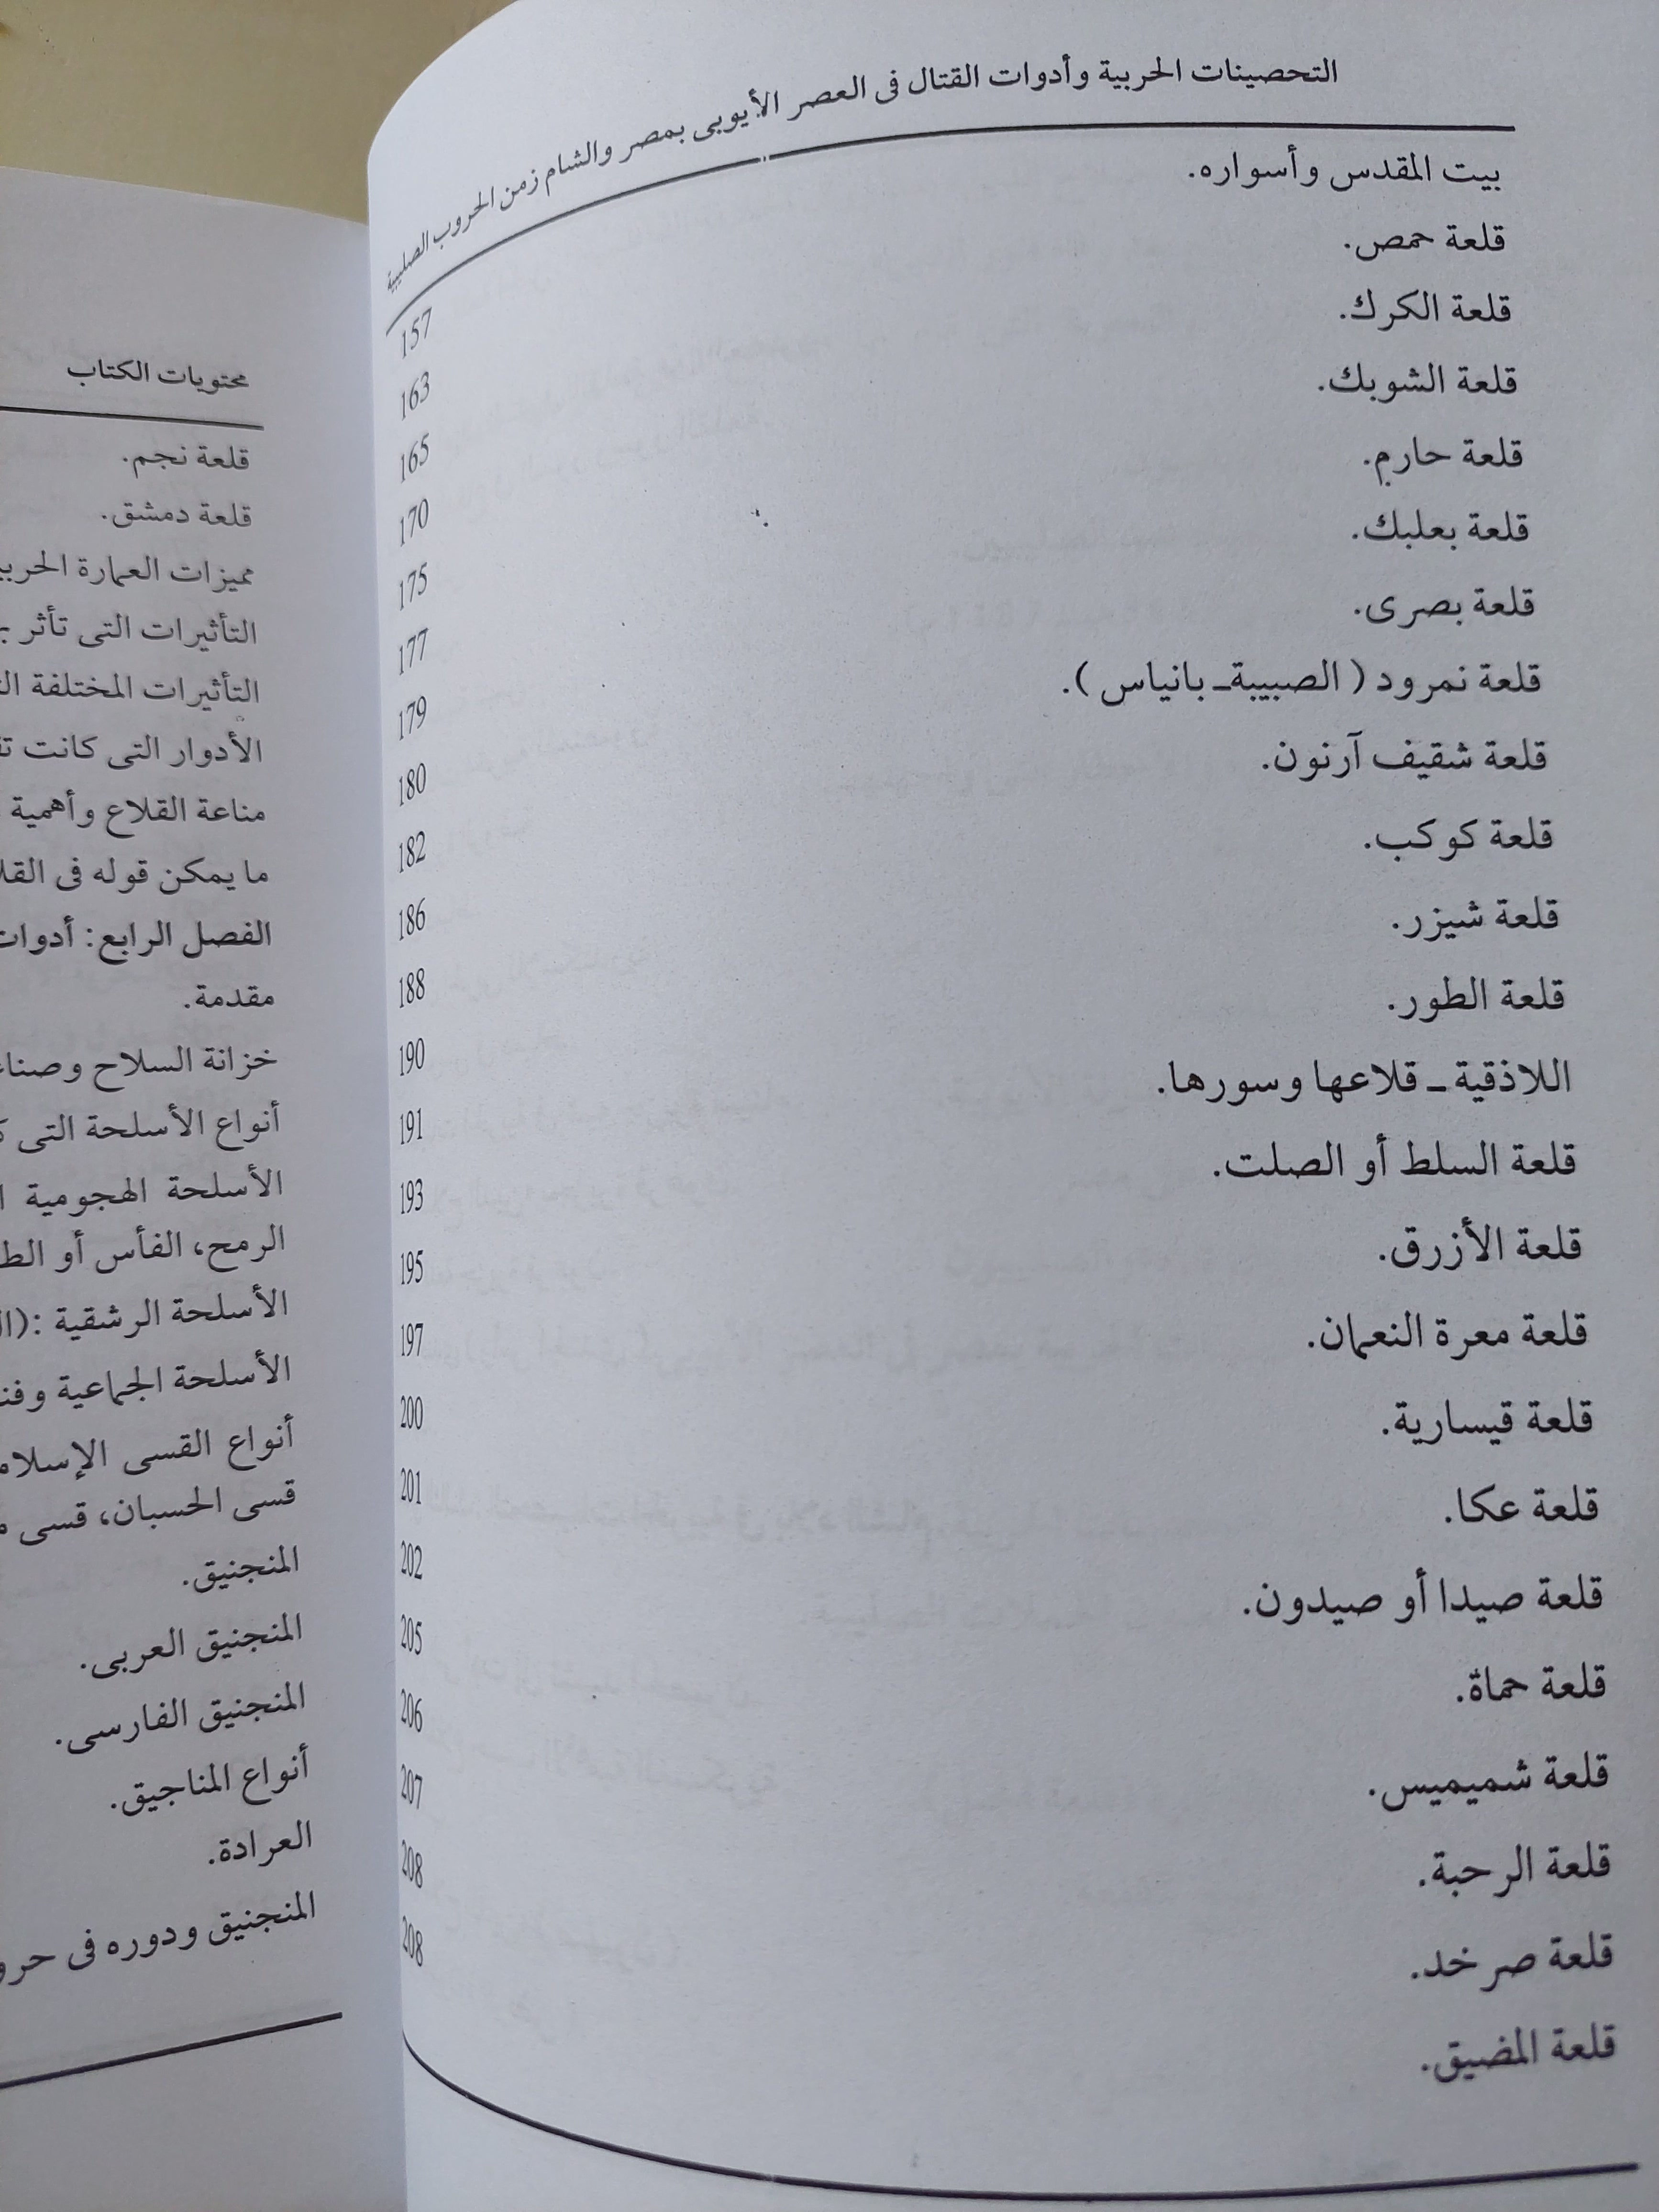 التحصينات الحربية وأدوات القتال فى العصر الأيوبى بمصر والشام زمن الحروب الصليبية
بيت المقدس وأسواره. 157
قلعة حمص. 163
قلعة الكرك. 165
قلعة الشوبك. 170
قلعة حارم. 175
قلعة بعلبك. 177
قلعة بصرى. 179
قلعة نمرود ( الصبيبة ـ بانياس ). 180
قلعة شقيف آرنون. 182
قلعة كوكب. 186
قلعة شيزر. 188
قلعة الطور. 190
اللاذقية ـ قلاعها وسورها. 191
قلعة السلط أو الصلت. 193
قلعة الأزرق. 195
قلعة معرة النعمان. 197
قلعة قيسارية. 200
قلعة عكا. 201
قلعة صيدا أو صيدون. 202
قلعة حماة. 205
قلعة شميميس. 206
قلعة الرحبة. 207
قلعة صرخد. 208
قلعة المضيق. 208
محتويات الكتاب
قلعة نجم.
قلعة دمشق.
مميزات العمارة
التأثيرات التى تأثر
التأثيرات المختلفة
الأدوار التى كانت
مناعة القلاع وأهمية
ما يمكن قوله فى
الفصل الرابع: أدوات
مقدمة.
خزانة السلاح
أنواع الأسلحة التى
الأسلحة الهجومية
الرمح، الفأس أو
الأسلحة الرشقية :(
الأسلحة الجماعية
أنواع القسى
قسى الحسبان، قسى
المنجنيق.
المنجنيق العربى.
المنجنيق الفارسى.
أنواع المناجيق.
العرادة.
المنجنيق ودوره فى